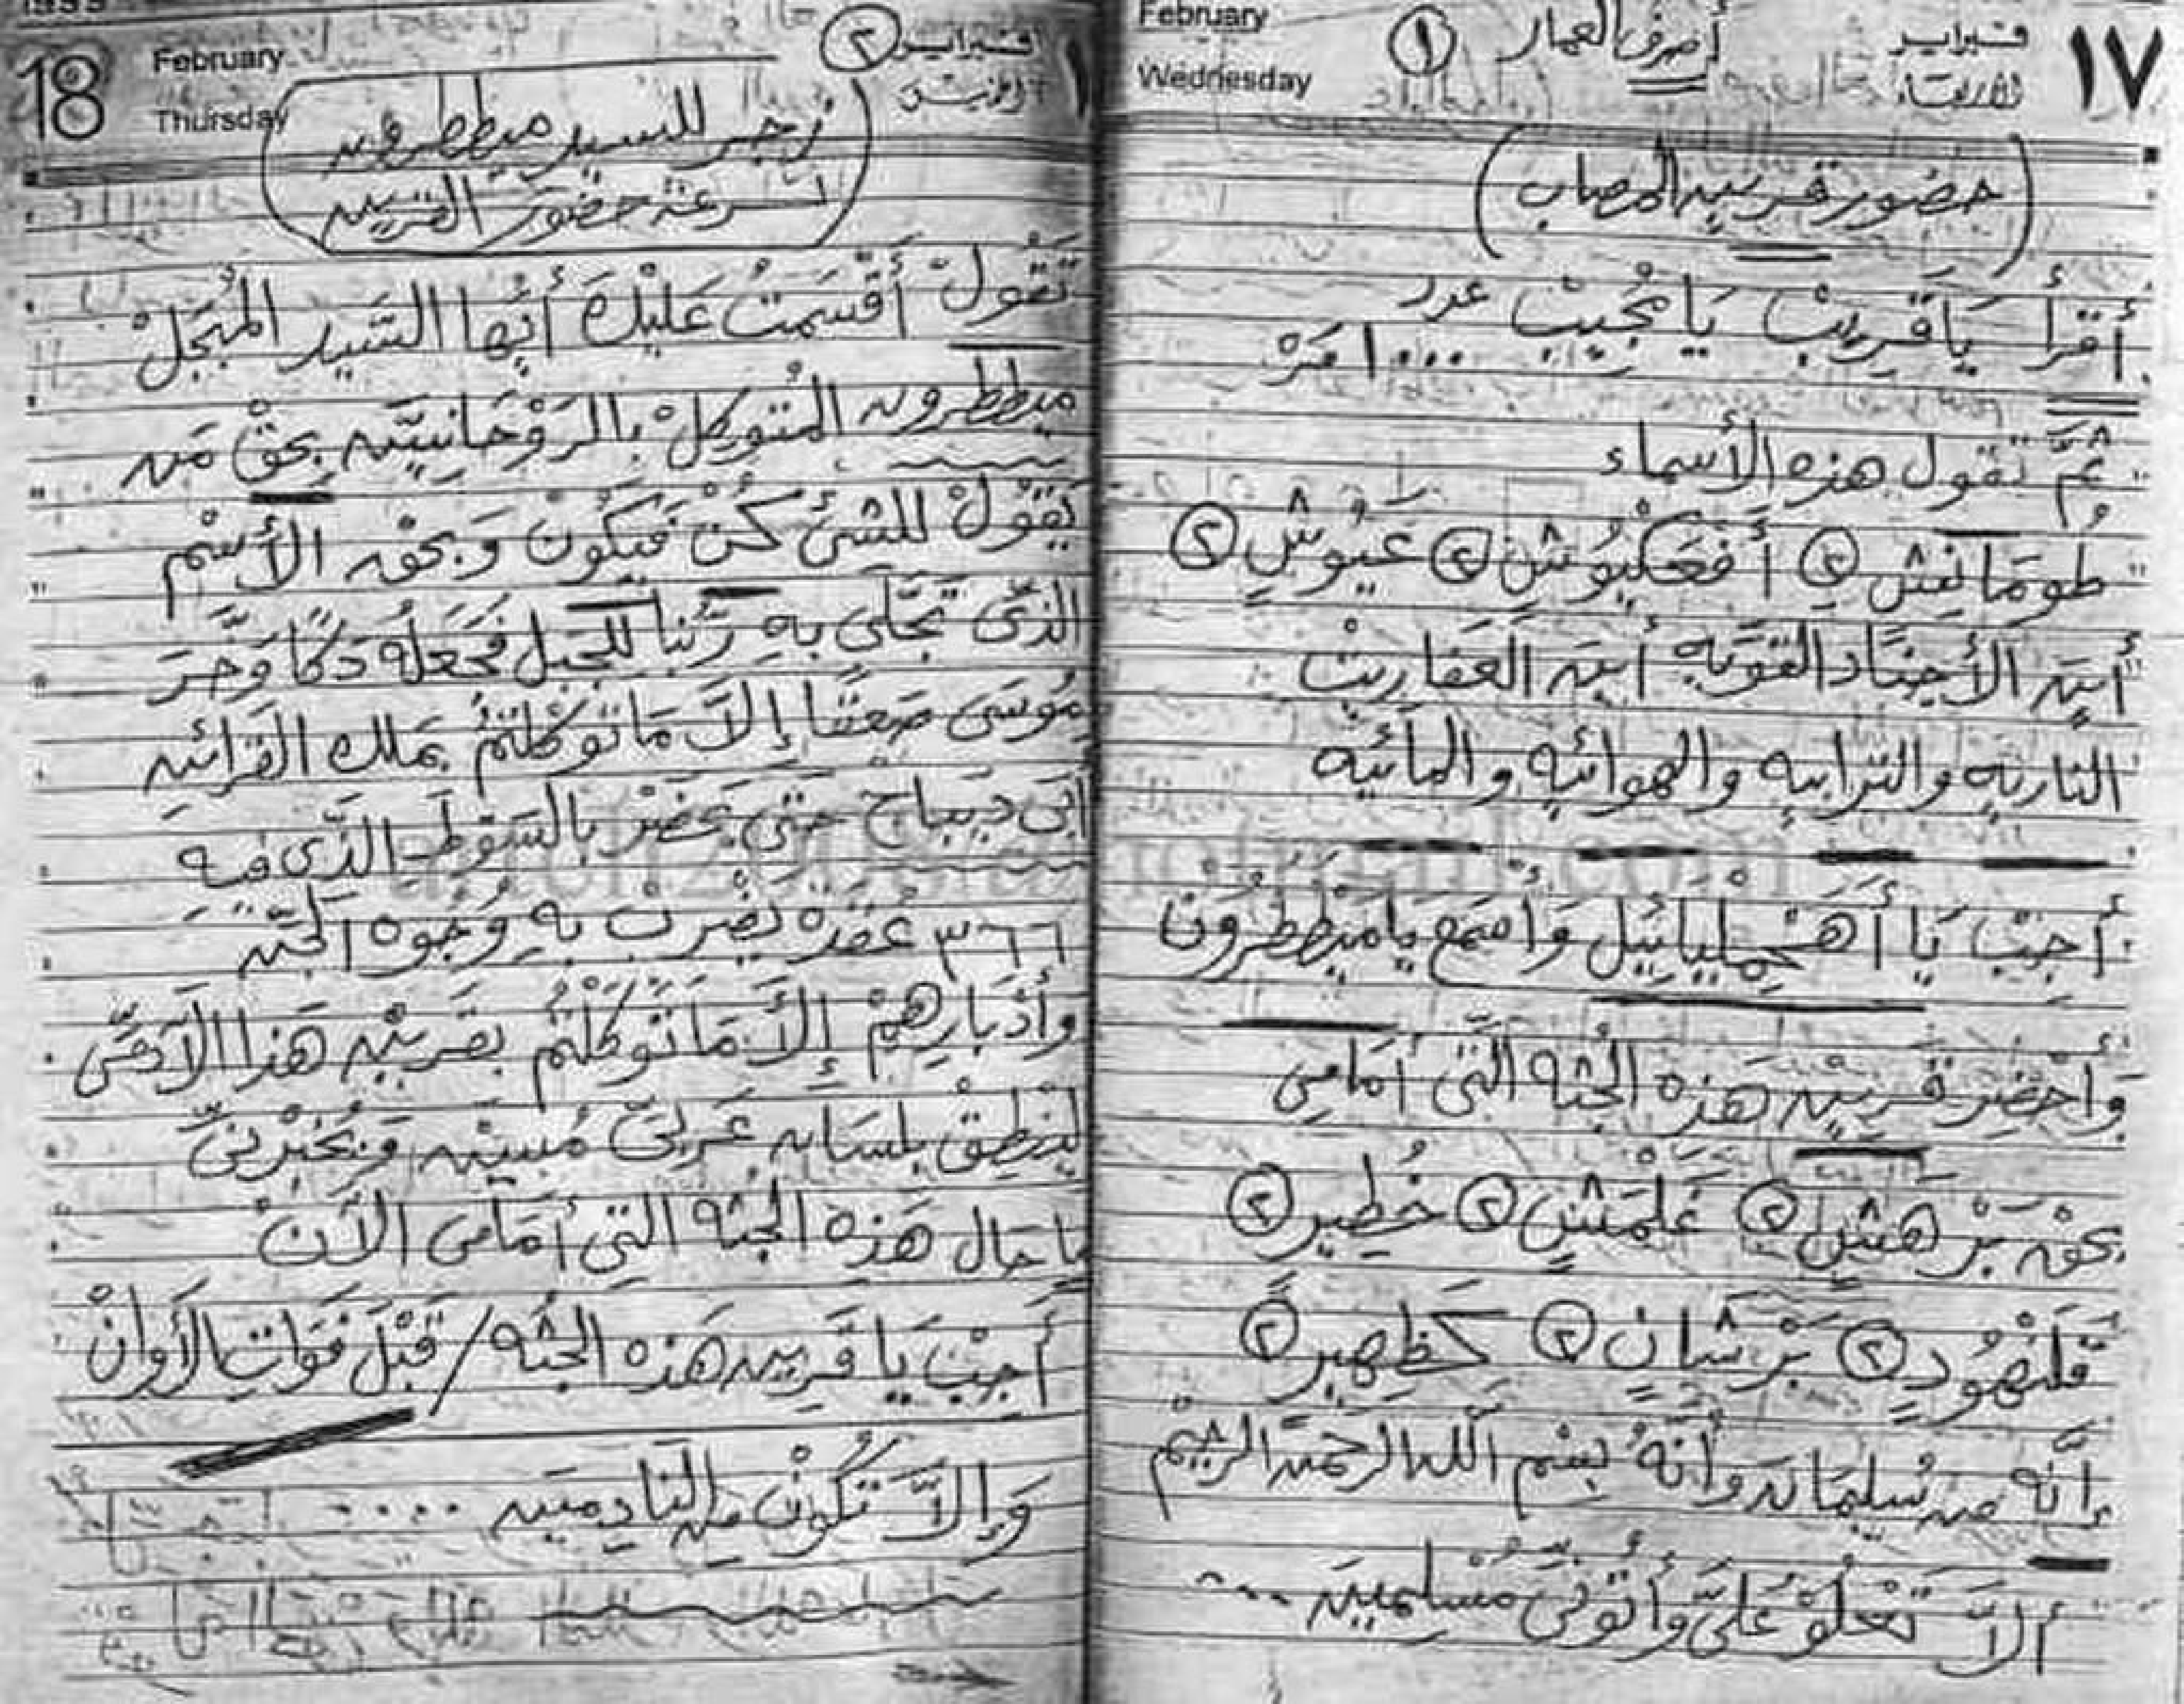 ١٧
فبراير
أصرف العمار
١
February
Wednesday
(حضور قرين المصاب)
أقرأ يَاقَرِيبْ يَا مُجِيبْ عدد ١٠٠٠ مَرَّة
ثُمَّ تقول هذه الأسماء
طُومَانِشٍ ٢ أَفْعَكْيُوشٍ ٢ عَيُوشٍ ٢
أَيْنَ الأجنَاد القَوّيَهِ أينَ العَفَاريتْ
الناريه والترابيه والهوائيه والمائيه
أَجِبْ يَا أَهَجْمِلْيَائِيل وَأسْمَع يا مَيْطَطَرُونْ
وَأحْضِر قَرينِ هَذِه الجُثه الَّتى أمَامى
بحق بَرْهَشٍ ٢ غَلْمَشٍ ٢ خُطِيرٍ ٢
قَلَنْهُودٍ ٢ بَرْشَانٍ ٢ كَظْهِيرٍ ٢
إنَّه من سُليمَان وَأنَّهُ بِسْمِ اللَّه الرحمن الرحيم
ألاَّ تَعْلُوْ عَلىَّ وأتُونى مُسْلِمينَ
18
February
Thursday
فبراير
٢
زجر للسيد ميططرون
لسرعة حضور القرين
تَقُول أَقْسَمتُ عَليْكَ أيُها السَّيد المُبَجلْ
ميططرون المُتوكلْ بالرَوْحَانِيَّين بِحَقْ مَن
يَقُولْ للشئ كُنْ فَيَكُونْ وَبحق الأسْم
الذّى تَجَّلى بِهِ رَّبُنا للجَبل فَجَعَلَهُ دَكًا وَخَرَ
مُوسَى صَعِقًا إلاَّ مَا تَوكَلتُمْ بملك القَرائنِ
أبى ديباج حَتى يَحْضر بالسَوْط الذَّى فِيهِ
٣٦٦ عُقدَه يَضْرِبْ بِهِ وُجُوه الجِّن
وأدْبَارِهِمْ إلاَّ مَا تَوكَلْتُمْ بقَريْن هَذا الآدَمّى
ليَنطِقْ بلسَان عَربىّ مُبين وَيُخْبرْنىّ
مَا حَال هَذِه الجُثه التِى أمَامى الآنْ
أَجِبْ يَا قَرين هَذه الجُثَه / قَبْلَ فَوَاتِ الأَوانْ
وَإلاَّ تَكُونْ من النَادِمينَ ....